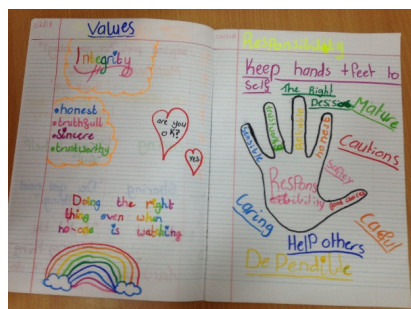 Values
Integrity
honest
truthfull
Sincere
trustworthy
are you
ok?
Yes
Doing the right
thing even when
no-one is watching
Responsibility
Keep hands + feet to
Self
The Right
Mature
Sensible
honest
Cautions
Safety
Respons
ibility
good choices
Caring
Careful
Help others
Dependible